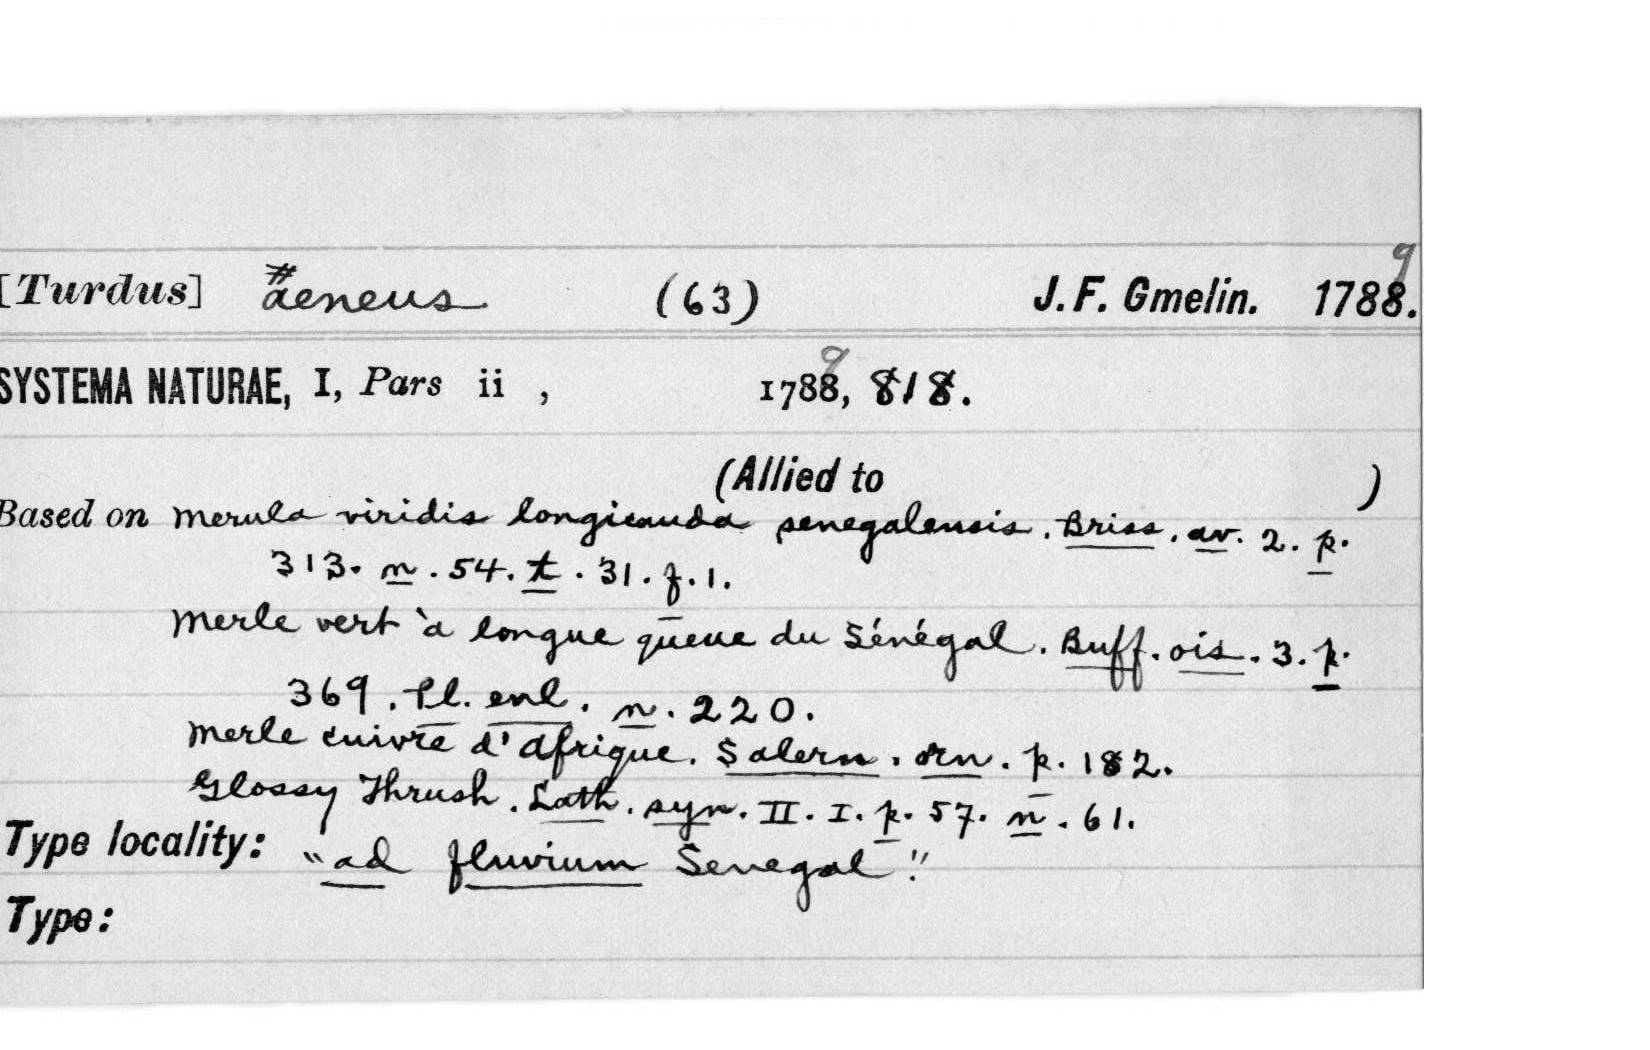 [Turdus] #aeneus (63) J. F. Gmelin. 1788. 9
SYSTEMA NATURAE, I, Pars ii , 1788, 9 818.
(Allied to )
Based on Merula viridis longicauda senegalensis. Briss. av. 2. p.
313. n. 54. t. 31. f. 1.
Merle vert à longue queue du Sénégal. Buff. ois. 3. p.
369. Pl. enl. n. 220.
Merle cuivre d'Afrique. Salern. orn. p. 182.
Glossy Thrush. Lath. syn. II. I. p. 57. n. 61.
Type locality: "ad fluvium Senegal."
Type: